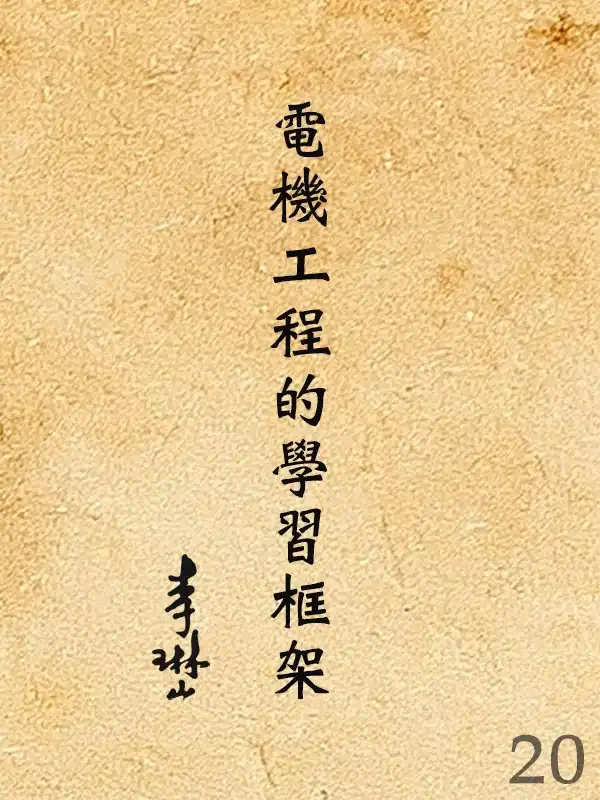 電機工程的學習框架
李琳山
20